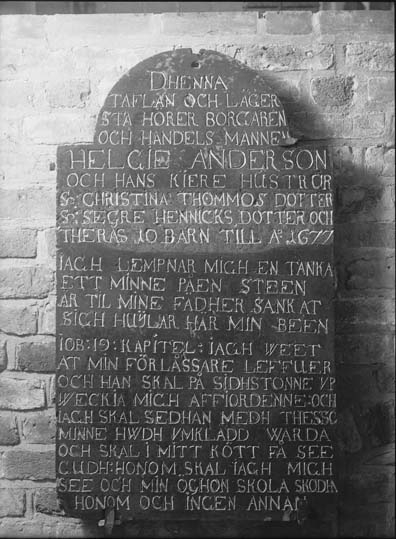 DHENNA
TAFLAN OCH LÄGER
STA HÖRER BORGAREN
OCH HANDELS MANNEN
HELGIE ANDERSON
OCH HANS KIERE HUSTRUR
S: CHRISTINA THOMMOS DOTTER
S: SEGRE HENNICKS DOTTER OCH
THERAS 10 BARN TILL A: 1677
IAGH LEMPNAR MIGH EN TANKA
ETT MINNE PÅEN STEEN
AR TIL MINE FADHER SANKAT
SIGH HUJLAR HÄR MIN BEEN
IOB: 19: KAPITEL: IAGH WEET
AT MIN FÖRLÅSSARE LEFFUER
OCH HAN SKAL PÅ SIDHSTONNE VP
WECKIA MIGH AFFIORDENNE: OCH
IAGH SKAL SEDHAN MEDH THESSO
MINNE HWDH VMKLÄDD WARDA
OCH SKAL I MITT KÖTT FÅ SEE
GUDH: HONOM SKAL IAGH MIGH
SEE OCH MIN ÖGHON SKOLA SKODHA
HONOM OCH INGEN ANNAN